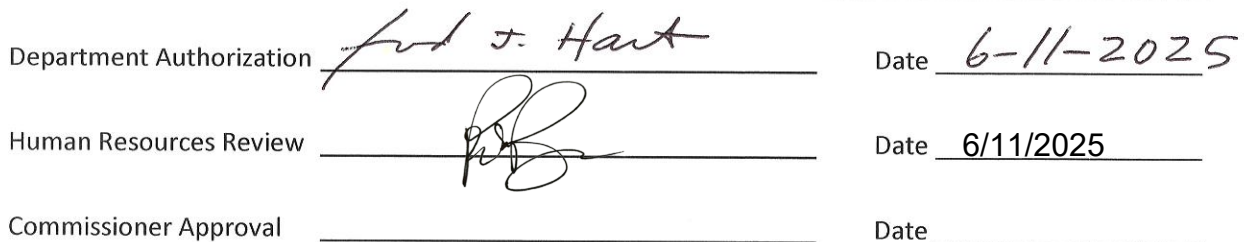 Department Authorization J. Hart Date 6-11-2025
Human Resources Review Date 6/11/2025
Commissioner Approval Date